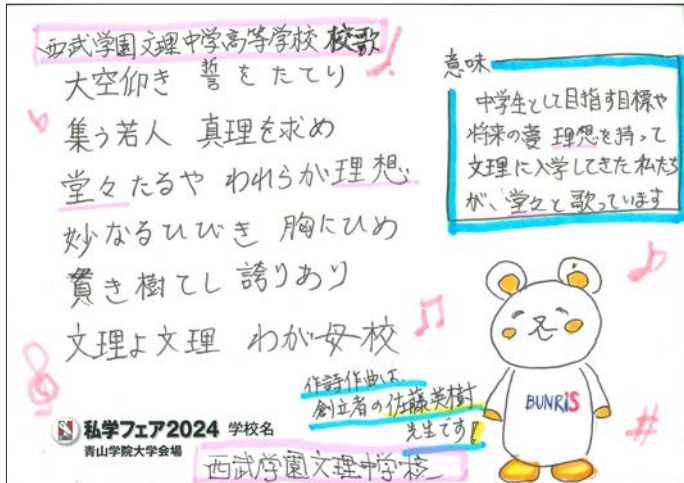 西武学園文理中学高等学校 校歌
大空仰き 誓をたてり
集う若人 真理を求め
堂々たるや われらが理想
妙なるひびき 胸にひめ
貫き樹てし 誇りあり
文理よ文理 わが母校
意味
中学生として目指す目標や
将来の夢 理想を持って
文理に入学してきた私たち
が、堂々と歌っています
作詩作曲は、
創立者の佐藤英樹
先生です!
BUNRiS
私学フェア2024 学校名
青山学院大学会場
西武学園文理中学校